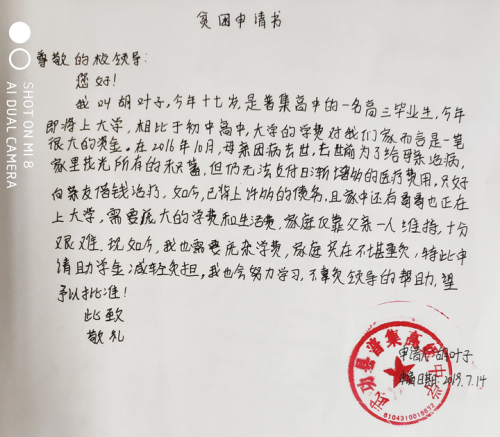 贫困申请书
尊敬的校领导:
您好!
我叫胡叶子,今年十七岁,是普集高中的一名高三毕业生,今年
即将上大学,相比于初中高中,大学的学费对我们家而言是一笔
很大的资金。在2016年10月,母亲因病去世,去世前为了给母亲治病,
家里找光所有的积蓄,但仍无法支付日渐增加的医疗费用,只好
向亲友借钱治疗,如今,已背上许多的债务,且家中还有哥哥也正在
上大学,需要庞大的学费和生活费,家庭仅靠父亲一人维持,十分
艰难.现如今,我也需要凭杂学费,家庭实在不堪重负,特此申
请助学金,减轻负担,我也会努力学习,不辜负领导的帮助,望
予以批准!
此致
敬礼
申请人:胡叶子
申请日期:2019.7.14
武功县普集高级中学
6104310019632
SHOT ON MI 8
AI DUAL CAMERA